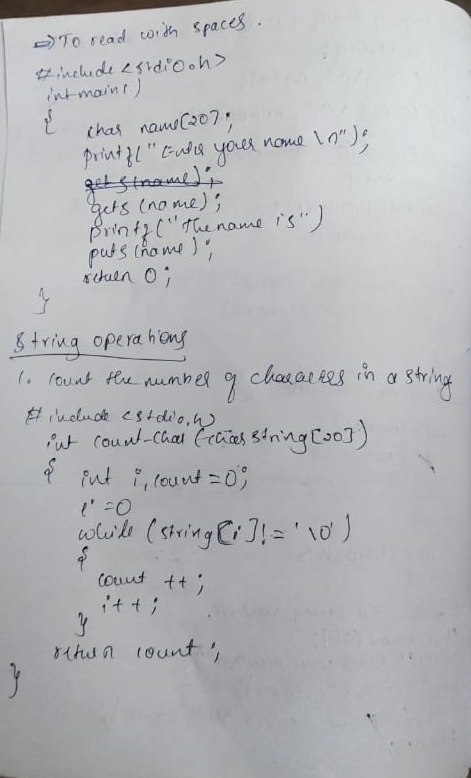 ⇒ To read with spaces.
#include <stdio.h>
int main()
{
char name[20];
printf("Enter your name \n");
gets(name);
gets(name);
printf("The name is")
puts(name);
return 0;
}
String operations
1. Count the number of characters in a string
#include <stdio.h>
int count-char(char string[20])
{ int i, count = 0;
i = 0
while (string[i] != '\0')
{
count ++;
i++;
}
return count;
}